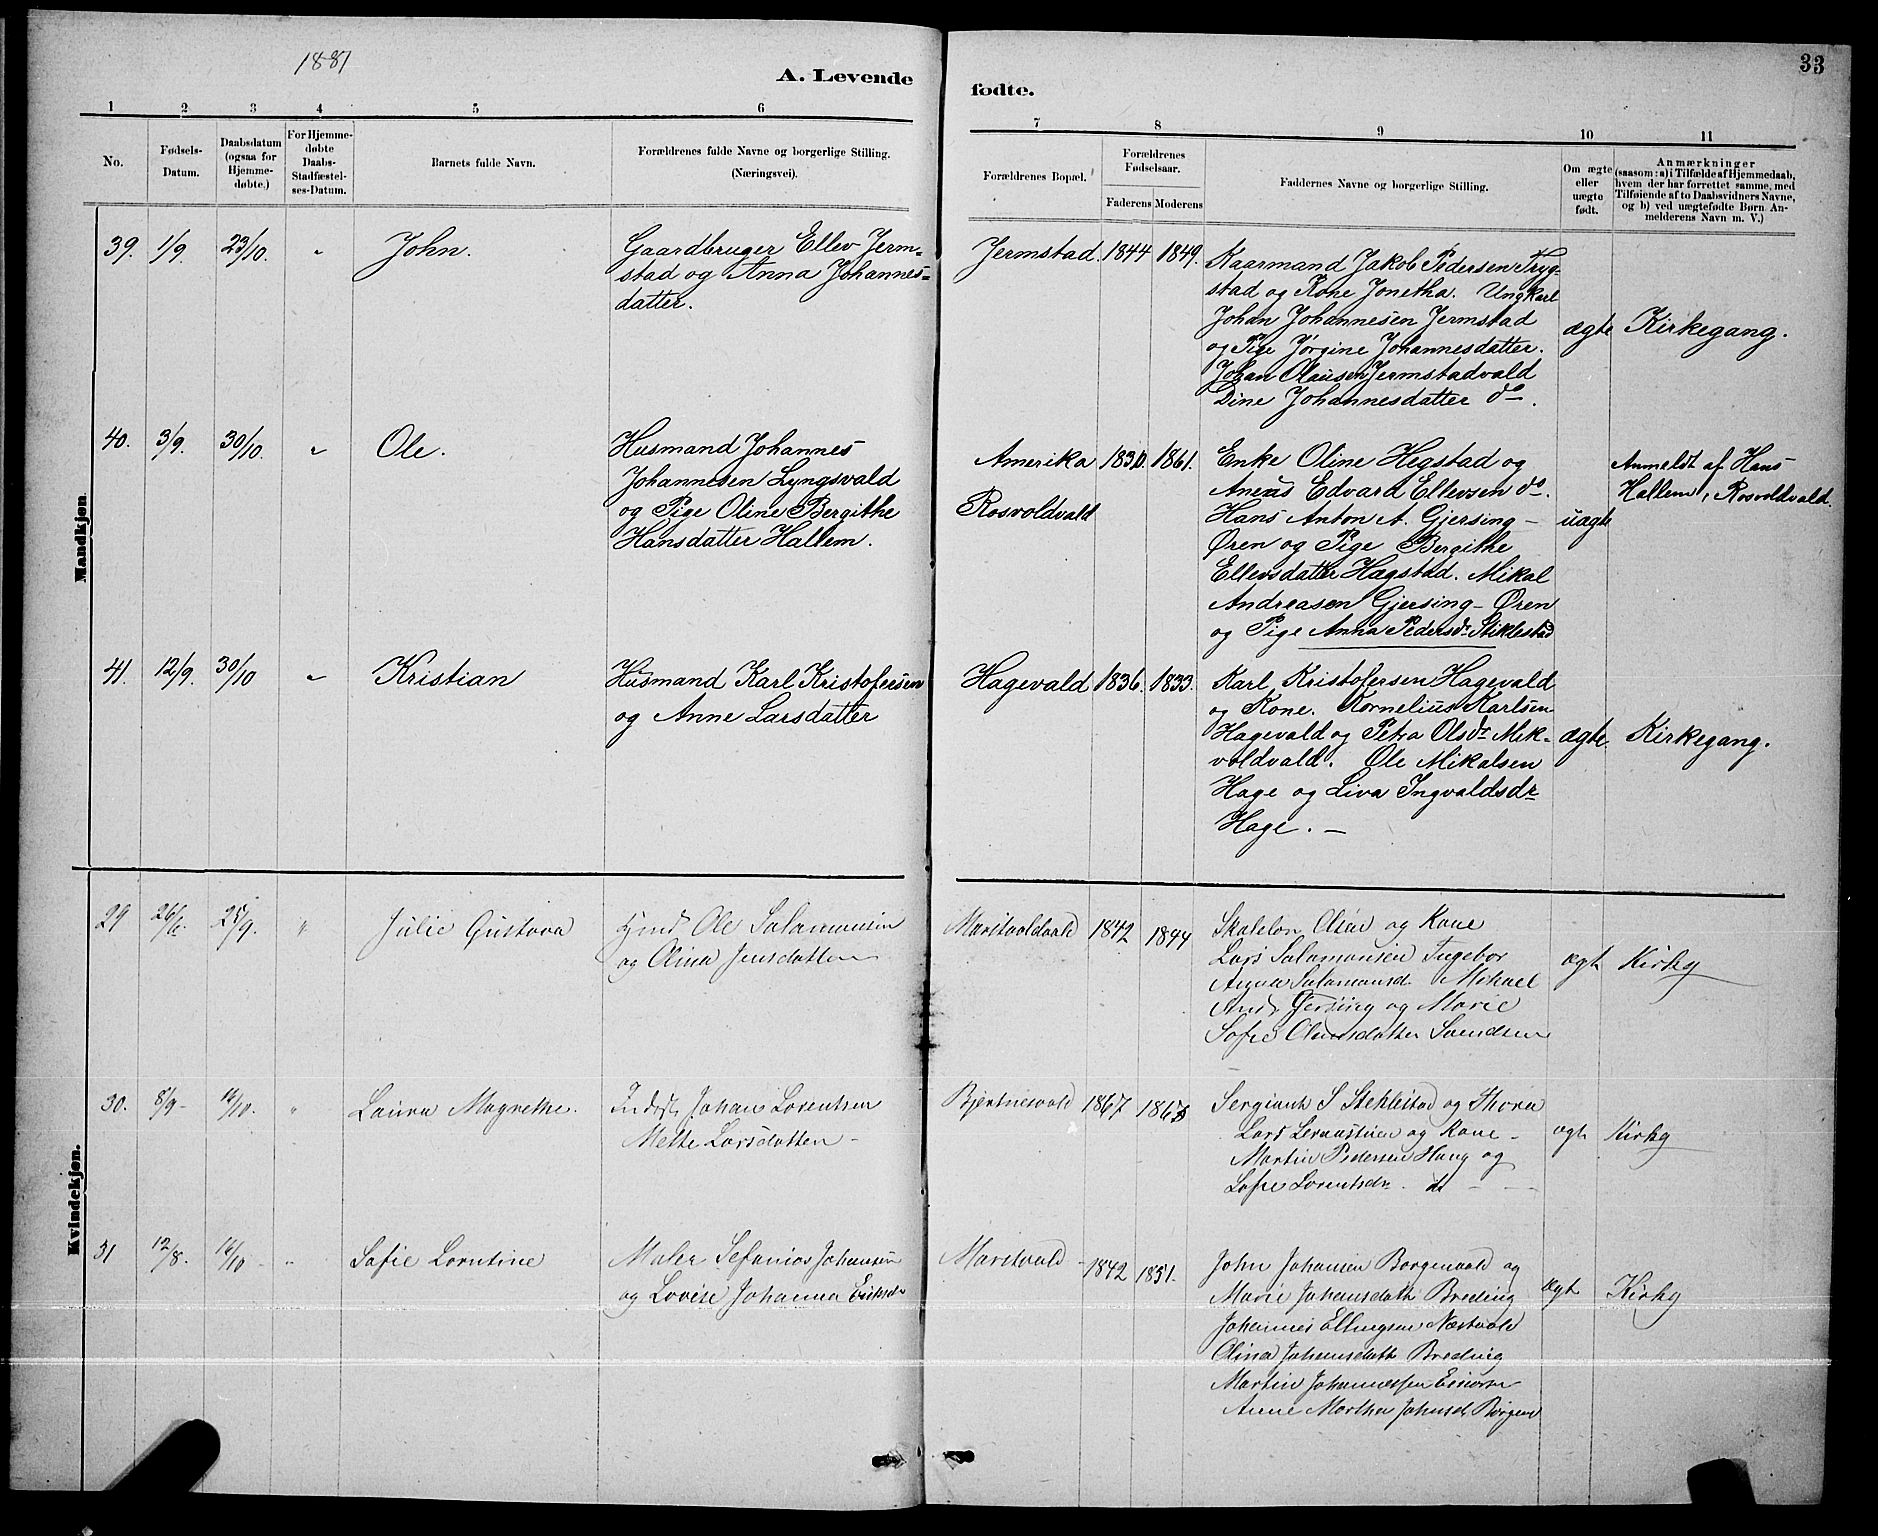 1881
33
A. Levende
fødte.
1 2 3 4 5 6
7 8 9 10 11
No.
Fødsels-
Datum.
Daabsdatum
(ogsaa for
Hjemme-
døbte.)
For Hjemme-
døbte
Daabs-
Stadfæstel-
ses-Datum.
Barnets fulde Navn.
Forældrenes fulde Navne og borgerlige Stilling.
(Næringsvei).
Forældrenes Bopæl.
Forældrenes
Fødselsaar.
Faderens Moderens
Faddernes Navne og borgerlige Stilling.
Om ægte
eller
uægte
født.
Anmærkninger
(saasom: a) i Tilfælde af Hjemmedaab,
hvem der har forrettet samme, med
Tilføiende af to Daabsvidners Navne,
og b) ved uægtefødte Børn An-
melderens Navn m. V.)
Mandkjøn.
39. 1/9. 23/10. " John.
Gaardbruger Ellev Jerm-
stad og Anna Johannes-
datter.
Jermstad. 1844 1849.
Kaarmand Jakob Pedersen Tryg-
stad og Kone Jonetha. Ungkarl
Johan Johannesen Jermstad
og Pige Jørgine Johannesdatter.
Johan Olausen Jermstadvald
Dine Johannesdatter do.
ægte Kirkegang.
40. 3/9. 30/10. " Ole.
Husmand Johannes
Johannesen Lyngsvald
og Pige Oline Bergithe
Hansdatter Hallem.
Amerika 1861.
Rosvoldvald
Enke Oline Hegstad og
Edvard Ellevsen do.
Hans Anton A. Gjersing-
Øren og Pige Bergithe
Ellevsdatter Hægstad. Mikal
Andreasen Gjersing-Øren
og Pige Anna Pedersdr Stiklestad
uægte
Anmeldt af Hans
Hallem, Rosvoldvald.
41. 12/9. 30/10 " Kristian
Husmand Karl Kristofersen
og Anne Larsdatter
Hagevald 1836. 1833.
Karl Kristofersen Hagevald
og Kone. Kornelius Karlsen
Hagevald og Petra Olsdr Mik-
voldvald. Ole Mikalsen
Hage og Liva Ingvaldsdr
Hage. —
ægte. Kirkegang.
Kvindekjøn.
29 25/9. " Julie Gustava
Ole Salamonsen
og Olina Jensdatter
1842 1844
Olsen og Kone
Lars Salamonsen Ingebor
Anna Salamonsd. Mikael
Gjersing og Marie
Sofie Svendsen
ægt Kirkg
30. 8/9- 16/10. " Laura Magrethe.
Inderst Johan Lorentsen
Mette Larsdatter -
1867
Sergiant S Stiklestad og Thora
Lars og Kone -
Martin Pedersen Haug og
Sofie Lorentsdr. do
ægt Kirkg
31 12/8. 16/10 - " Sofie Lorntine
Maler Sefanias Johansen
og Lovise Johanna Eriksdr
1842 1851.
John Johansen Borgenvald og
Marie Johansdatt Breding
Johannes Ellingsen
Olina Johansdatt Breding
Martin Johannessen
Anne Martha Johnsd.
ægt Kirkg